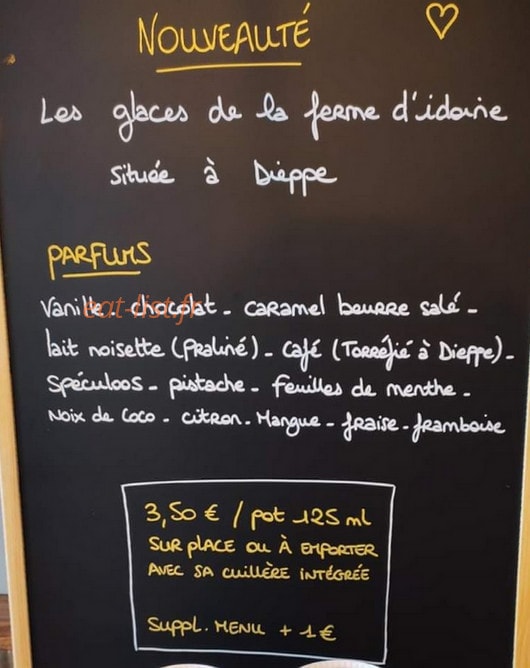 NOUVEAUTÉ
Les glaces de la ferme d'idoine
située à Dieppe
PARFUMS
Vanille - chocolat - caramel beurre salé -
lait noisette (Praliné) - café (Torréfié à Dieppe) -
Spéculoos - pistache - feuilles de menthe -
Noix de Coco - citron - Mangue - fraise - framboise
eat-list.fr
3,50 € / pot 125 ml
SUR PLACE OU À EMPORTER
AVEC SA CUILLÈRE INTÉGRÉE
SUPPL. MENU + 1 €